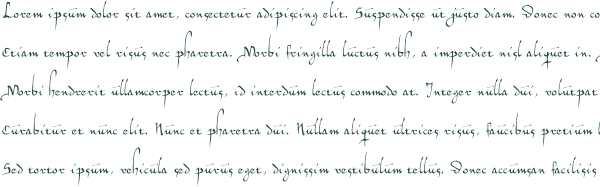 Lorem ipsum dolor sit amet, consectetur adipiscing elit. Suspendisse ut justo diam. Donec non co
Etiam tempor vel risus nec pharetra. Morbi fringilla luctus nibh, a imperdiet nisl aliquet in.
Morbi hendrerit ullamcorper lectus, id interdum lectus commodo at. Integer nulla dui, volutpat
Curabitur et nunc elit. Nunc et pharetra dui. Nullam aliquet ultrices risus, faucibus pretium
Sed tortor ipsum, vehicula sed purus eget, dignissim vestibulum tellus. Donec accumsan facilisis